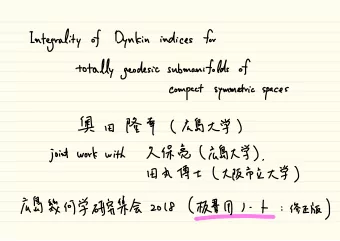 Integrality of Dynkin indices for
totally geodesic submanifolds of
compact symmetric spaces
奥田 隆幸 (広島大学)
joint work with 久保亮 (広島大学),
田丸博士 (大阪市立大学)
広島幾何学研究集会 2018 (板書用ノート : 修正版)